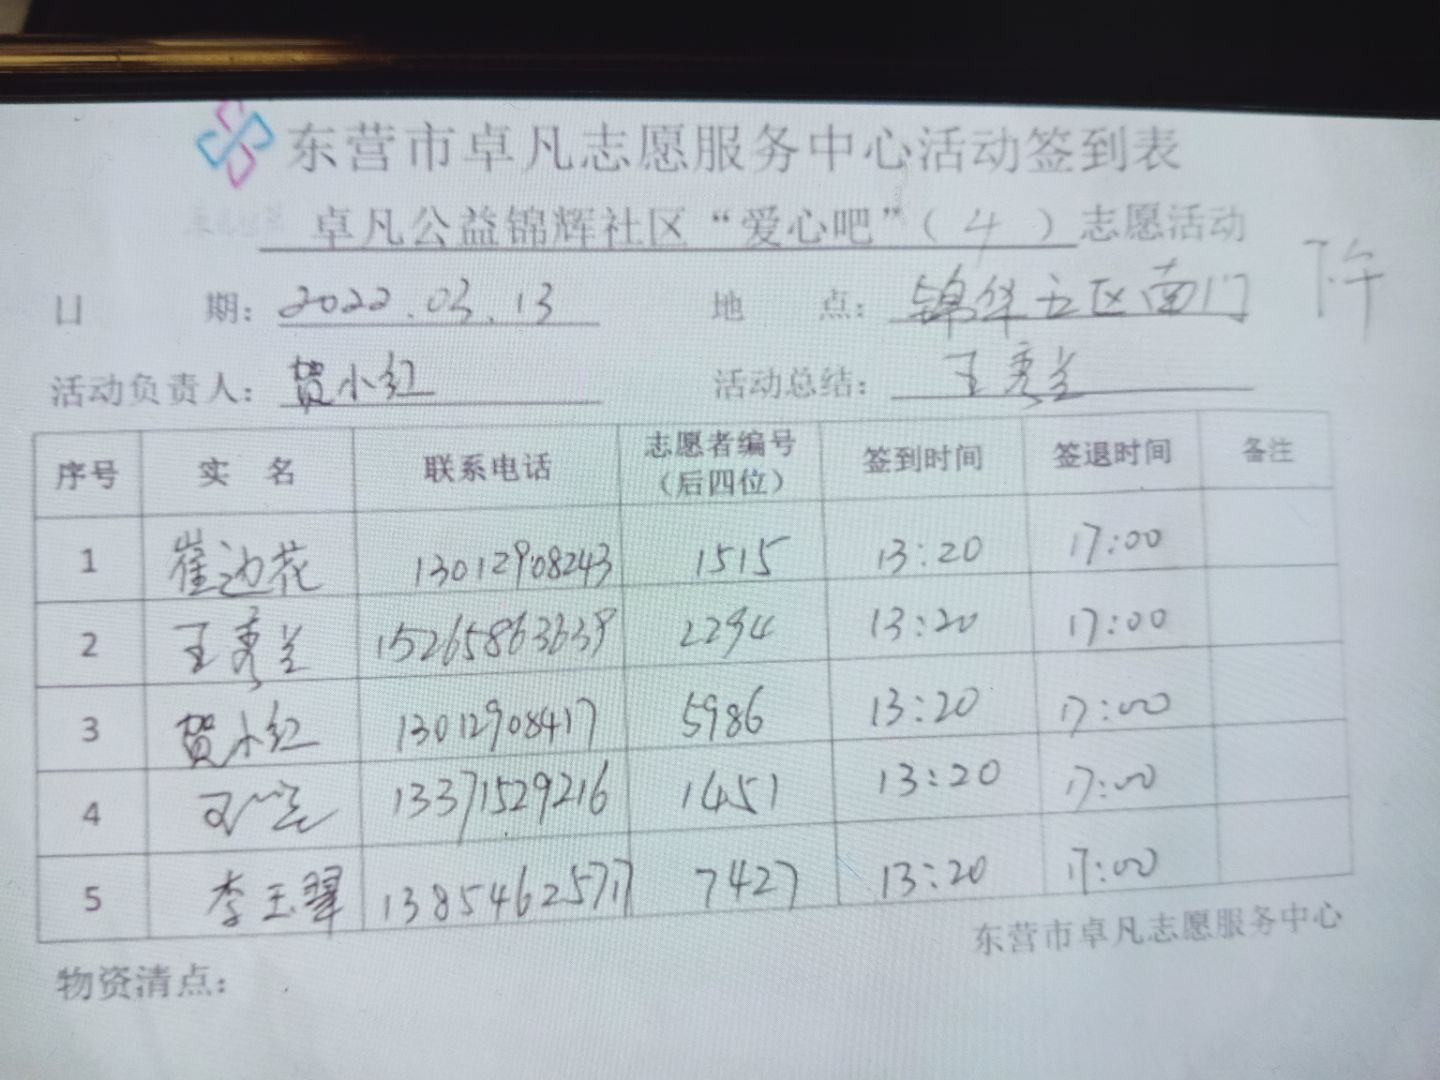 东营市卓凡志愿服务中心活动签到表
卓凡公益锦辉社区“爱心吧”（4）志愿活动
日期：2022.03.13 地点：锦华五区南门 下午
活动负责人：贺小红 活动总结：王秀兰
序号 实名 联系电话 志愿者编号（后四位） 签到时间 签退时间 备注
1 崔边花 13012908243 1515 13:20 17:00
2 王秀兰 15265863639 2294 13:20 17:00
3 贺小红 13012908417 5986 13:20 17:00
4 13371529216 1451 13:20 17:00
5 李玉翠 13854625717 7427 13:20 17:00
东营市卓凡志愿服务中心
物资清点：